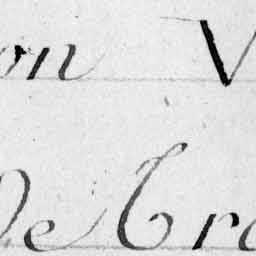 on V
De Cra